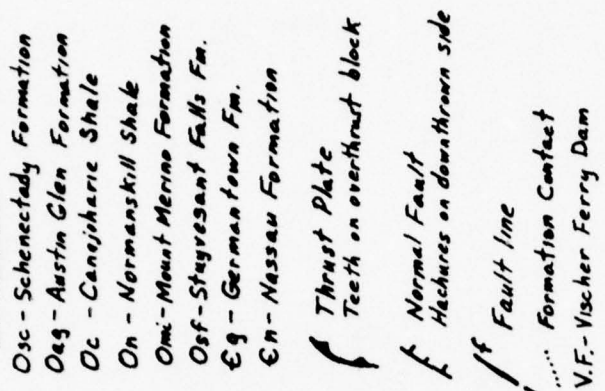 Osc - Schenectady Formation
Oag - Austin Glen Formation
Oc - Canajoharie Shale
On - Normanskill Shale
Omi - Mount Merino Formation
Osf - Stuyvesant Falls Fm.
Єg - Germantown Fm.
Єn - Nassau Formation
Thrust Plate
Teeth on overthrust block
Normal Fault
Hachures on downthrown side
Fault line
Formation Contact
V.F. - Vischer Ferry Dam